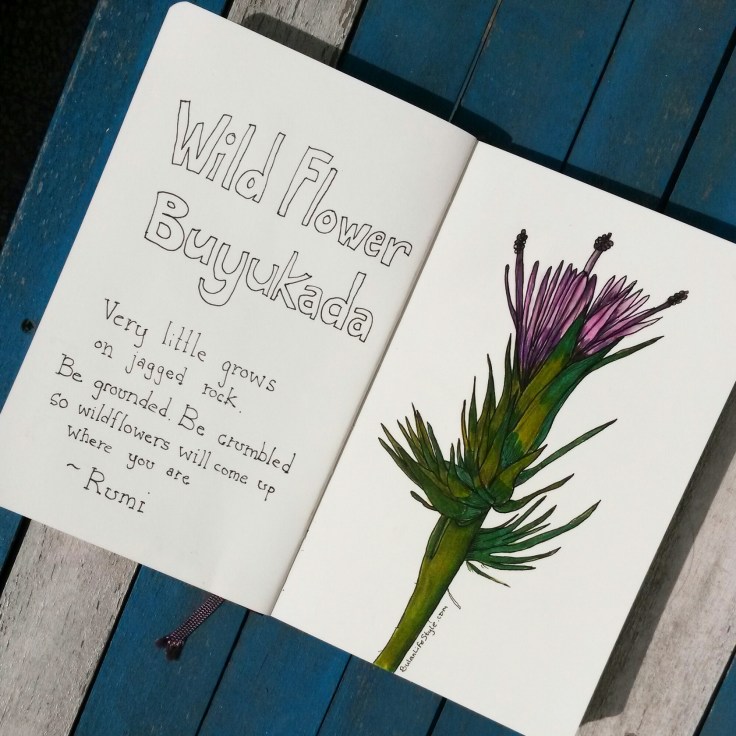 Wild Flower
Buyukada
Very little grows
on jagged rock.
Be grounded. Be crumbled
so wildflowers will come up
where you are
~ Rumi
BulanLifeStyle.com